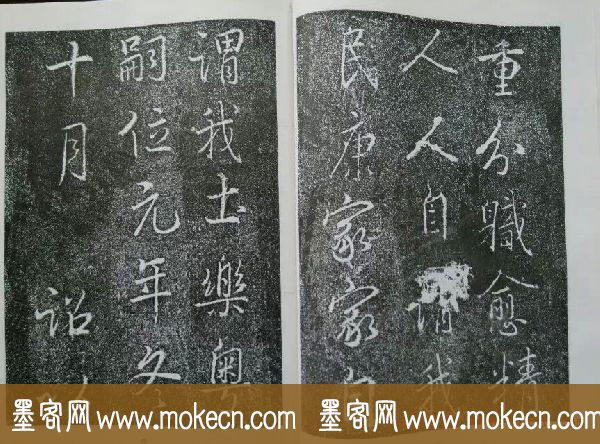 重分職愈精
人人自謂我
民康家家自
謂我土樂粵
嗣位元年冬
十月詔
墨客网 www.mokecn.com 墨客网 www.mokecn.com